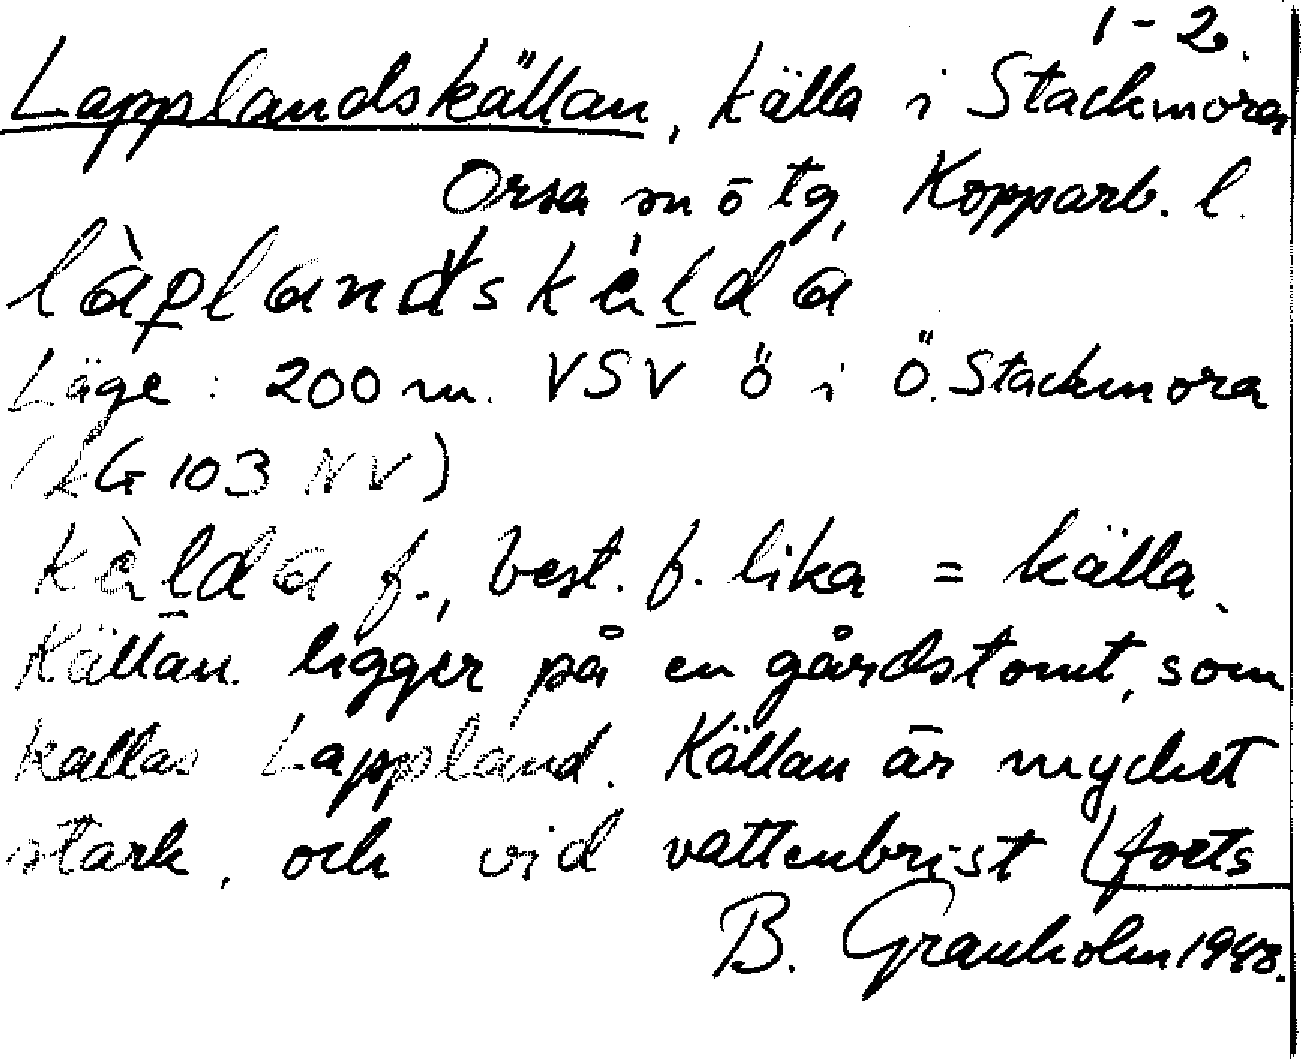 1-2.
Lapplandskällan, källa i Stackmora,
Orsa sn ö tg, Kopparb. l.
làplandskàlda
Läge: 200 m. VSV Ö i Ö. Stackmora
(LG 103 NV)
kàlda f., best. f. lika = källa.
Källan ligger på en gårdstomt, som
kallas Lappland. Källan är mycket
stark, och vid vattenbrist (forts
B. Granholm 1948.